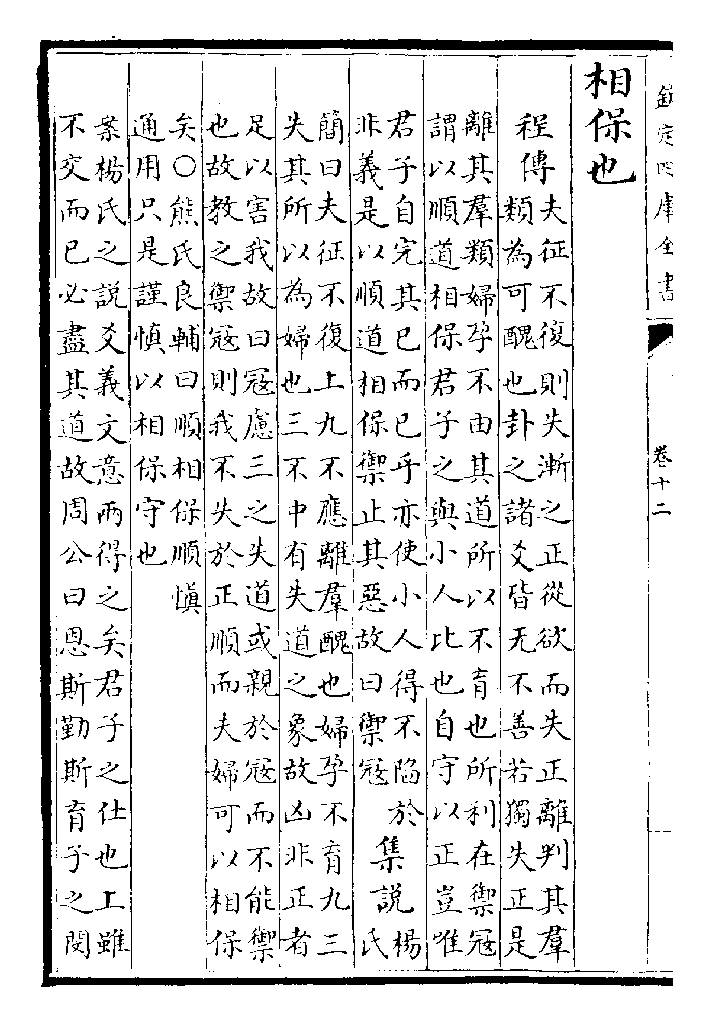 欽定四庫全書
卷十二
相保也
程傳夫征不復則失漸之正從欲而失正離判其羣
類為可醜也卦之諸爻皆无不善若獨失正是
離其羣類婦孕不由其道所以不育也所利在禦寇
謂以順道相保君子之與小人比也自守以正豈唯
君子自完其已而已乎亦使小人得不陷於
非義是以順道相保禦止其惡故曰禦寇
集說楊氏
簡曰夫征不復上九不應離羣醜也婦孕不育九三
失其所以為婦也三不中有失道之象故凶非正者
足以害我故曰寇慮三之失道或親於寇而不能禦
也故教之禦寇則我不失於正順而夫婦可以相保
矣○熊氏良輔曰順相保順慎
通用只是謹慎以相保守也
案楊氏之說爻義文意兩得之矣君子之仕也上雖
不交而已必盡其道故周公曰恩斯勤斯育子之閔